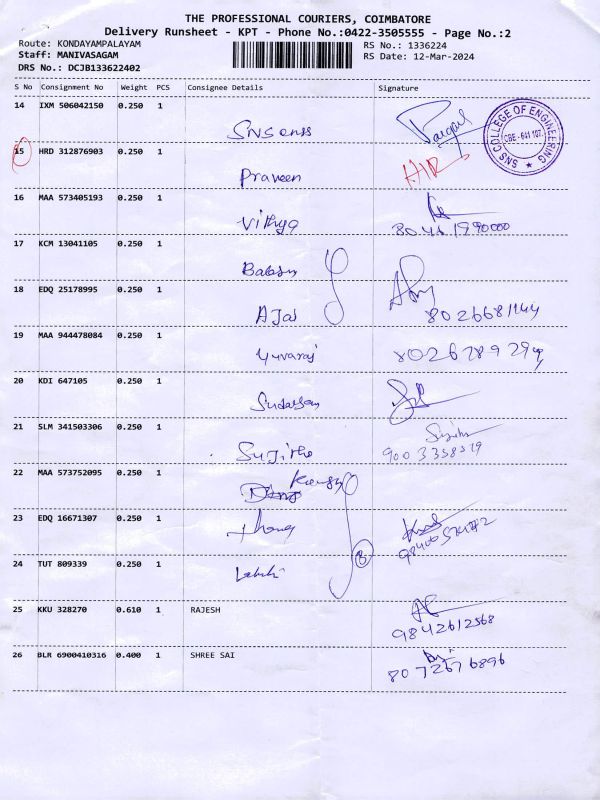 THE PROFESSIONAL COURIERS, COIMBATORE
Delivery Runsheet - KPT - Phone No.:0422-3505555 - Page No.:2
Route: KONDAYAMPALAYAM
RS No.: 1336224
Staff: MANIVASAGAM
RS Date: 12-Mar-2024
DRS No.: DCJB133622402
S No Consignment No Weight PCS Consignee Details Signature
14 IXM 506042150 0.250 1
SNS
SNS COLLEGE OF ENGINEERING
CBE - 641 107.
15 HRD 312876903 0.250 1
Praveen
16 MAA 573405193 0.250 1
Vithya
17 KCM 13041105 0.250 1
18 EDQ 25178995 0.250 1
AJas
8026681144
19 MAA 944478084 0.250 1
Yuvaraj
20 KDI 647105 0.250 1
Sudarsan
21 SLM 341503306 0.250 1
Sujitha
22 MAA 573752095 0.250 1
23 EDQ 16671307 0.250 1
24 TUT 809339 0.250 1
8
25 KKU 328270 0.610 1 RAJESH
9842612568
26 BLR 6900410316 0.400 1 SHREE SAI
8072676896